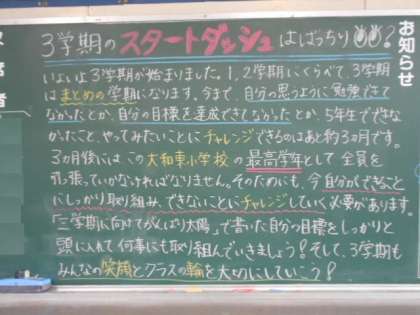 お知らせ
欠席者
3学期のスタートダッシュはばっちり?
いよいよ3学期が始まりました。1,2学期にくらべて、3学期
はまとめの学期になります。今まで、自分の思うように勉強できて
なかったとか、自分の目標を達成できてなかったとか、5年生でできな
かったこと、やってみたいことにチャレンジできるのはあと約3ヵ月です。
3ヵ月後にはこの大和東小学校の最高学年として全員を
引っ張っていかなければなりません。そのためにも、今自分ができること
にしっかり取り組み、できないことにチャレンジしていく必要があります。
「三学期に向けてがんばり太陽」で書いた自分の目標をしっかりと
頭に入れて何事にも取り組んでいきましょう!そして、3学期も
みんなの笑顔とクラスの輪を大切にしていこう!